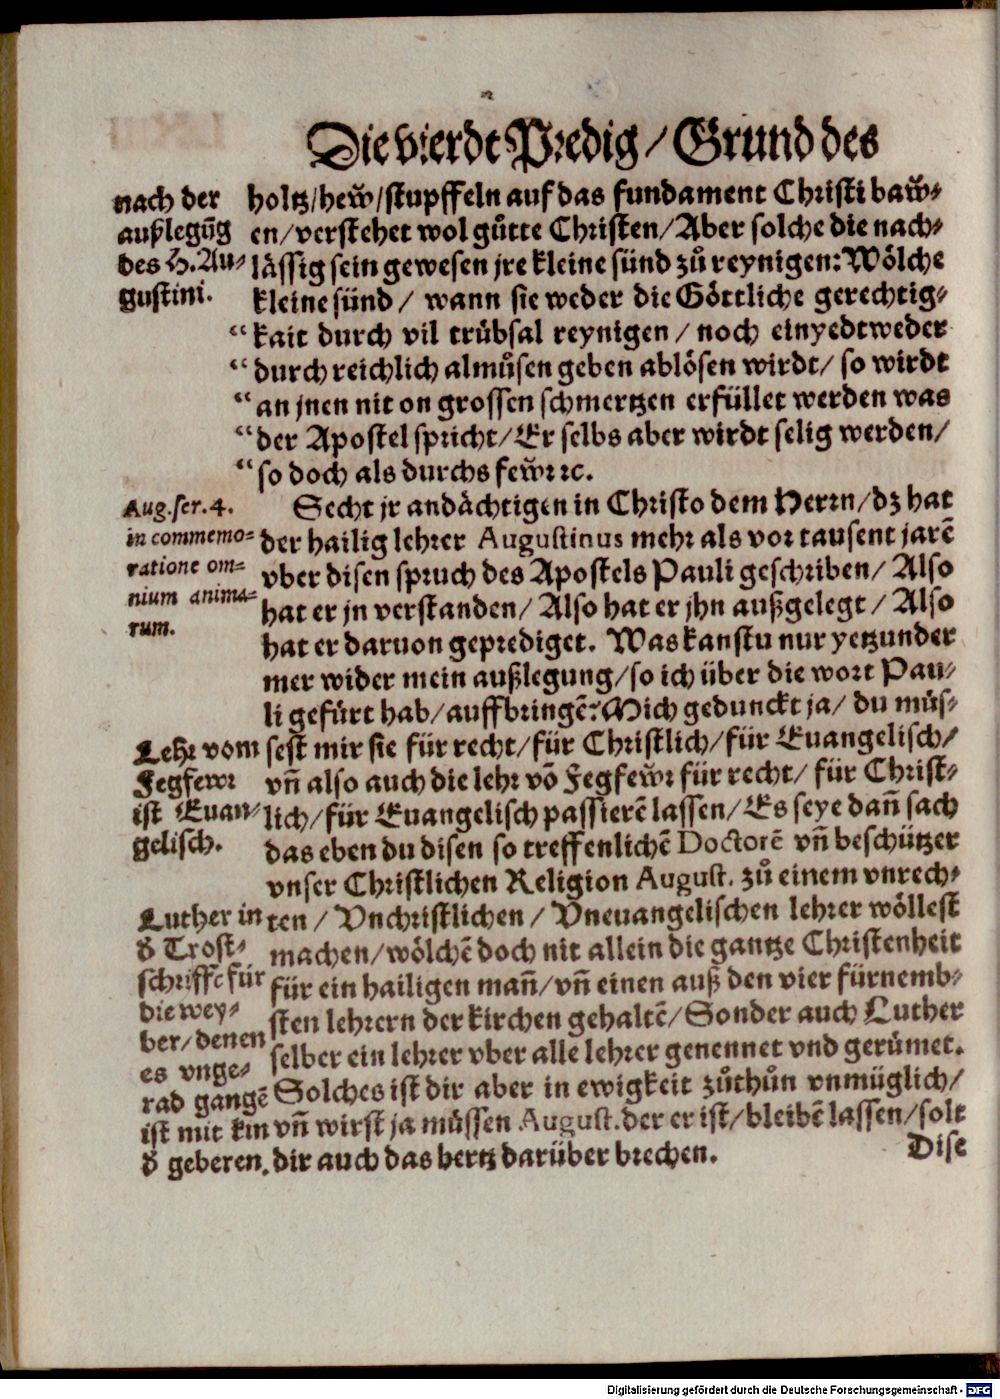 Die vierdt Predig / Grund des
nach der
außlegũg
des H. Au-
gustini.
holtz/hew̃/stupffeln auf das fundament Christi baw̃-
en/verstehet wol gůtte Christen/Aber solche die nach-
lässig sein gewesen jre kleine sünd zů reynigen: Wölche
kleine sünd / wann sie weder die Göttliche gerechtig-
“ kait durch vil trübsal reynigen / noch einyedtweder
“ durch reichlich almůsen geben ablösen wirdt/ so wirdt
“ an jnen nit on grossen schmertzen erfüllet werden was
“ der Apostel spricht/Er selbs aber wirdt selig werden/
“ so doch als durchs few̃r ꝛc.
Aug. ser. 4.
in commemo-
ratione om-
nium anima-
rum.
Secht jr andächtigen in Christo dem Herrn/dz hat
der hailig lehrer Augustinus mehr als vor tausent jarẽ
vber disen spruch des Apostels Pauli geschriben/ Also
hat er jn verstanden/ Also hat er jhn außgelegt / Also
hat er daruon geprediget. Was kanstu nur yetzunder
mer wider mein außlegung/so ich über die wort Pau-
li gefürt hab/auffbringẽ? Mich gedunckt ja/ du müs-
sest mir sie für recht/für Christlich/für Euangelisch/
vñ also auch die lehr võ Fegfew̃r für recht/ für Christ-
lich/für Euangelisch passierẽ lassen/ Es seye dañ sach
das eben du disen so treffenlichẽ Doctorẽ vñ beschützer
vnser Christlichen Religion August. zů einem vnrech-
ten / Vnchristlichen / Vneuangelischen lehrer wöllest
machen/wölchẽ doch nit allein die gantze Christenheit
für ein hailigen mañ/vñ einen auß den vier fürnemb-
sten lehrern der kirchen gehaltẽ/ Sonder auch Luther
selber ein lehrer vber alle lehrer genennet vnd gerůmet.
Solches ist dir aber in ewigkeit zůthůn vnmüglich/
vñ wirst ja müssen August. der er ist/bleibẽ lassen/solt
dir auch das hertz darüber brechen.
Lehr vom
Fegfewr
ist Euan-
gelisch.
Luther in
d̕ Trost-
schrifft für
die wey-
ber/denen
es vnge-
rad gangẽ
ist mit kin
d̕ geberen.
Dise
Digitalisierung gefördert durch die Deutsche Forschungsgemeinschaft - DFG